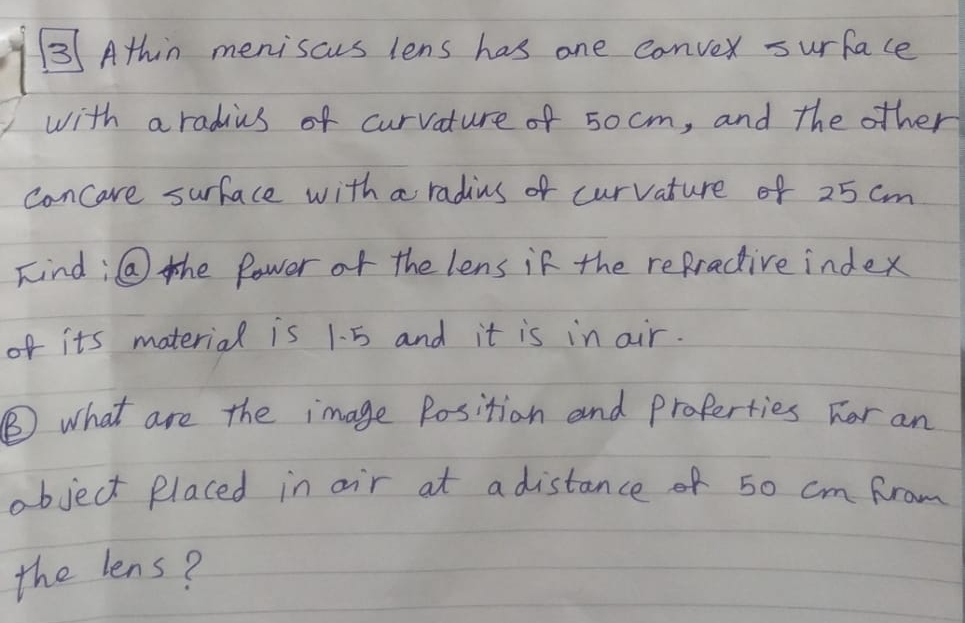 3 A thin meniscus lens has one convex surface
with a radius of curvature of 50 cm, and the other
concave surface with a radius of curvature of 25 cm
Find : ⓐ the Power of the lens if the refractive index
of its material is 1.5 and it is in air.
Ⓑ What are the image Position and Properties For an
object Placed in air at a distance of 50 cm from
the lens?